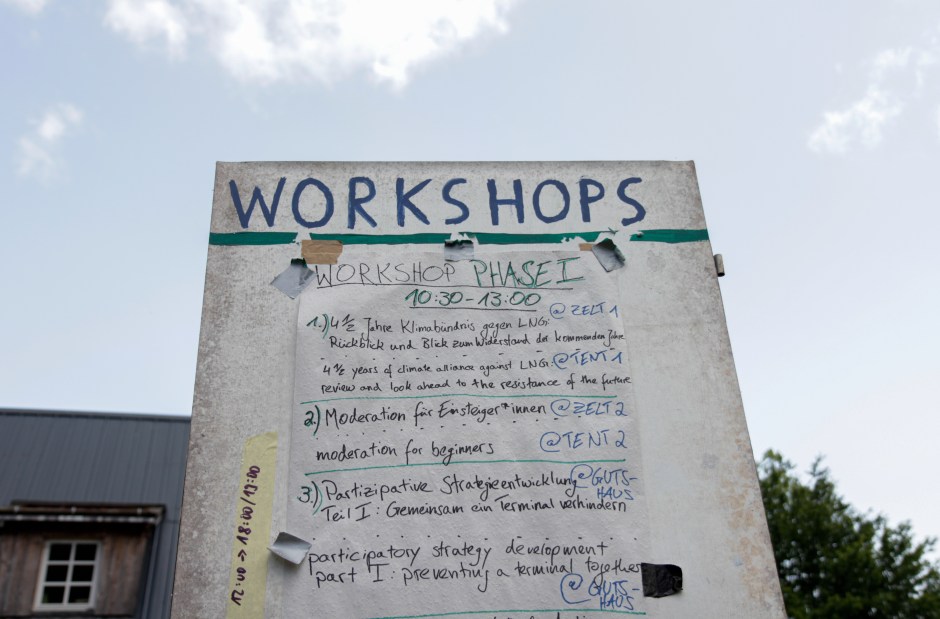 WORKSHOPS
WORKSHOP PHASE I
10:30-13:00
1.) 4 1/2 Jahre Klimabündnis gegen LNG: @ZELT 1
Rückblick und Blick zum Widerstand der kommenden Jahre
4 1/2 years of climate alliance against LNG: @TENT 1
review and look ahead to the resistance of the future
2.) Moderation für Einsteiger*innen @ZELT 2
moderation for beginners @TENT 2
3.) Partizipative Strategieentwicklung @GUTS-
HAUS
Teil I: Gemeinsam ein Terminal verhindern
participatory strategy development
part I: preventing a terminal together
@GUTS-
HAUS